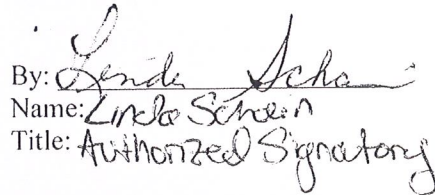 By: Linda Schein
Name: Linda Schein
Title: Authorized Signatory